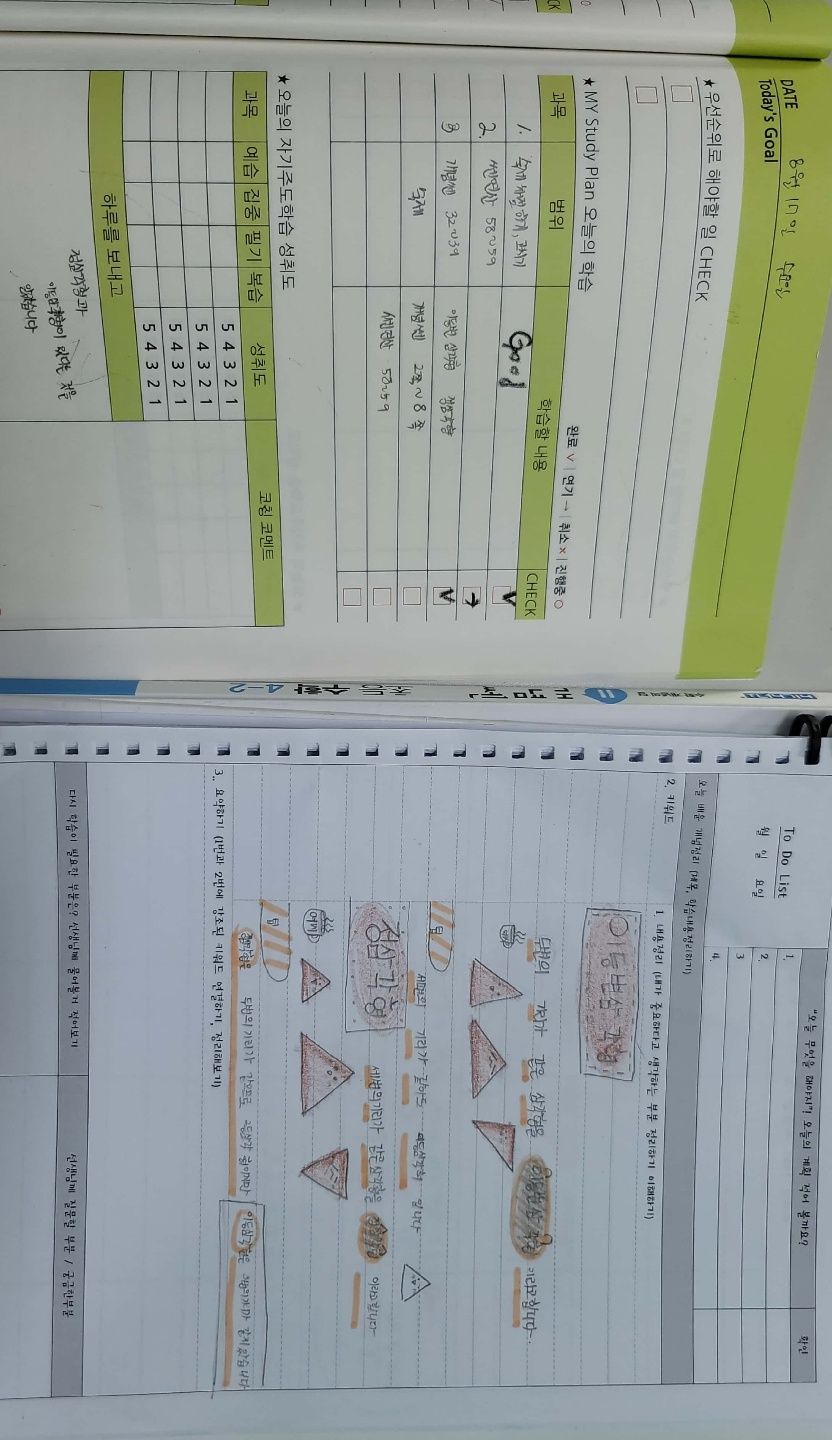 DATE 8월 17일 수요일
Today's Goal
★우선순위로 해야할 일 CHECK
★ MY Study Plan 오늘의 학습
완료 ∨ | 연기 → | 취소 × | 진행중 ○
과목 범위 학습할 내용 CHECK
1. 숙제 채점 하기, 고치기 Good ∨
2. 쎈연산 58~59 →
3 개념쎈 32~39 이등변 삼각형 정삼각형 ∨
숙제 개념쎈 2쪽~8쪽
쎈연산 58~59
★ 오늘의 자기주도학습 성취도
과목 예습 집중 필기 복습 성취도 코칭 코멘트
5 4 3 2 1
5 4 3 2 1
5 4 3 2 1
5 4 3 2 1
하루를 보내고
정삼각형과
이등변삼각형이 있다는 것을
알았습니다
개념쎈
수학 4-2
To Do List
월 일 요일
"오늘 무엇을 해야지"! 오늘의 계획 적어 볼까요?
확인
1.
2.
3
4.
오늘 배운 개념정리 (제목, 학습내용정리하기)
2. 키워드
1. 내용정리 (내가 중요하다고 생각하는 부분 정리하기 이해하기)
이등변삼각형
두변의 길이가 같은 삼각형을 이등변삼각형 이라고 합니다.
팁
세변의 길이가 같아도 이등변삼각형 입니다
정삼각형
세변의 길이가 같은 삼각형을 정삼각형 이라고 합니다
팁
정삼각형은 두변의 길이가 같으므로 이등변삼각형이기도 하다
3. 요약하기 (1번과 2번에 강조된 키워드 연결하기, 정리해보기)
다시 학습이 필요한 부분은? 선생님께 물어볼거 적어보기
선생님께 질문할 부분 / 궁금한부분